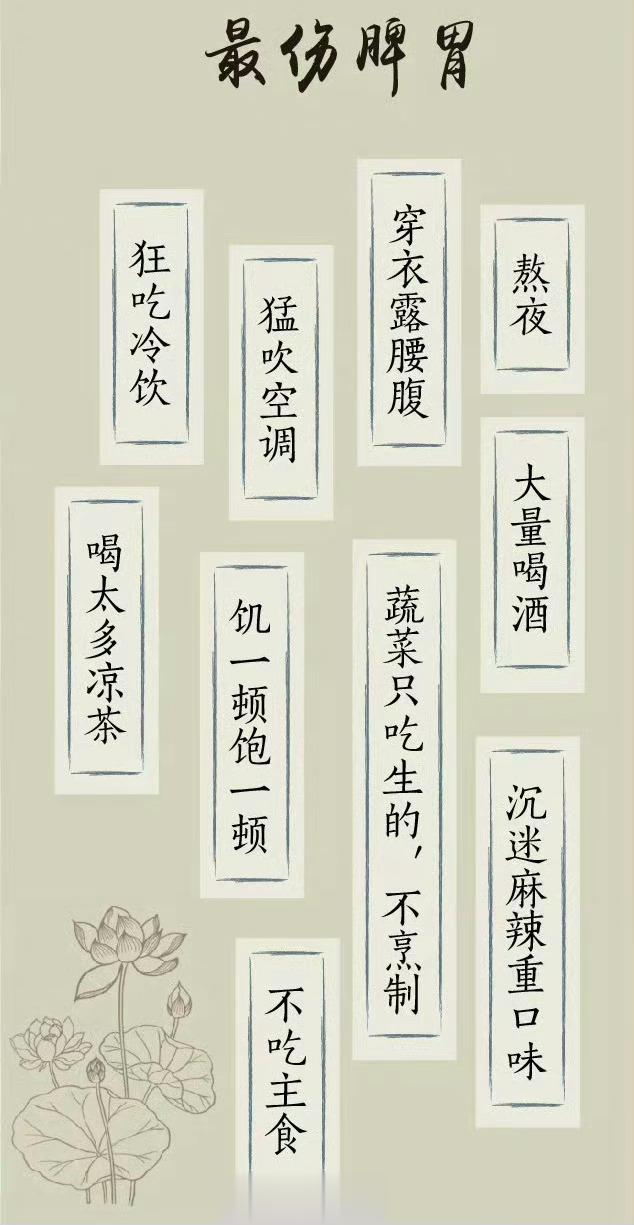 最伤脾胃
熬夜
穿衣露腰腹
猛吹空调
狂吃冷饮
大量喝酒
蔬菜只吃生的，不烹制
饥一顿饱一顿
喝太多凉茶
沉迷麻辣重口味
不吃主食